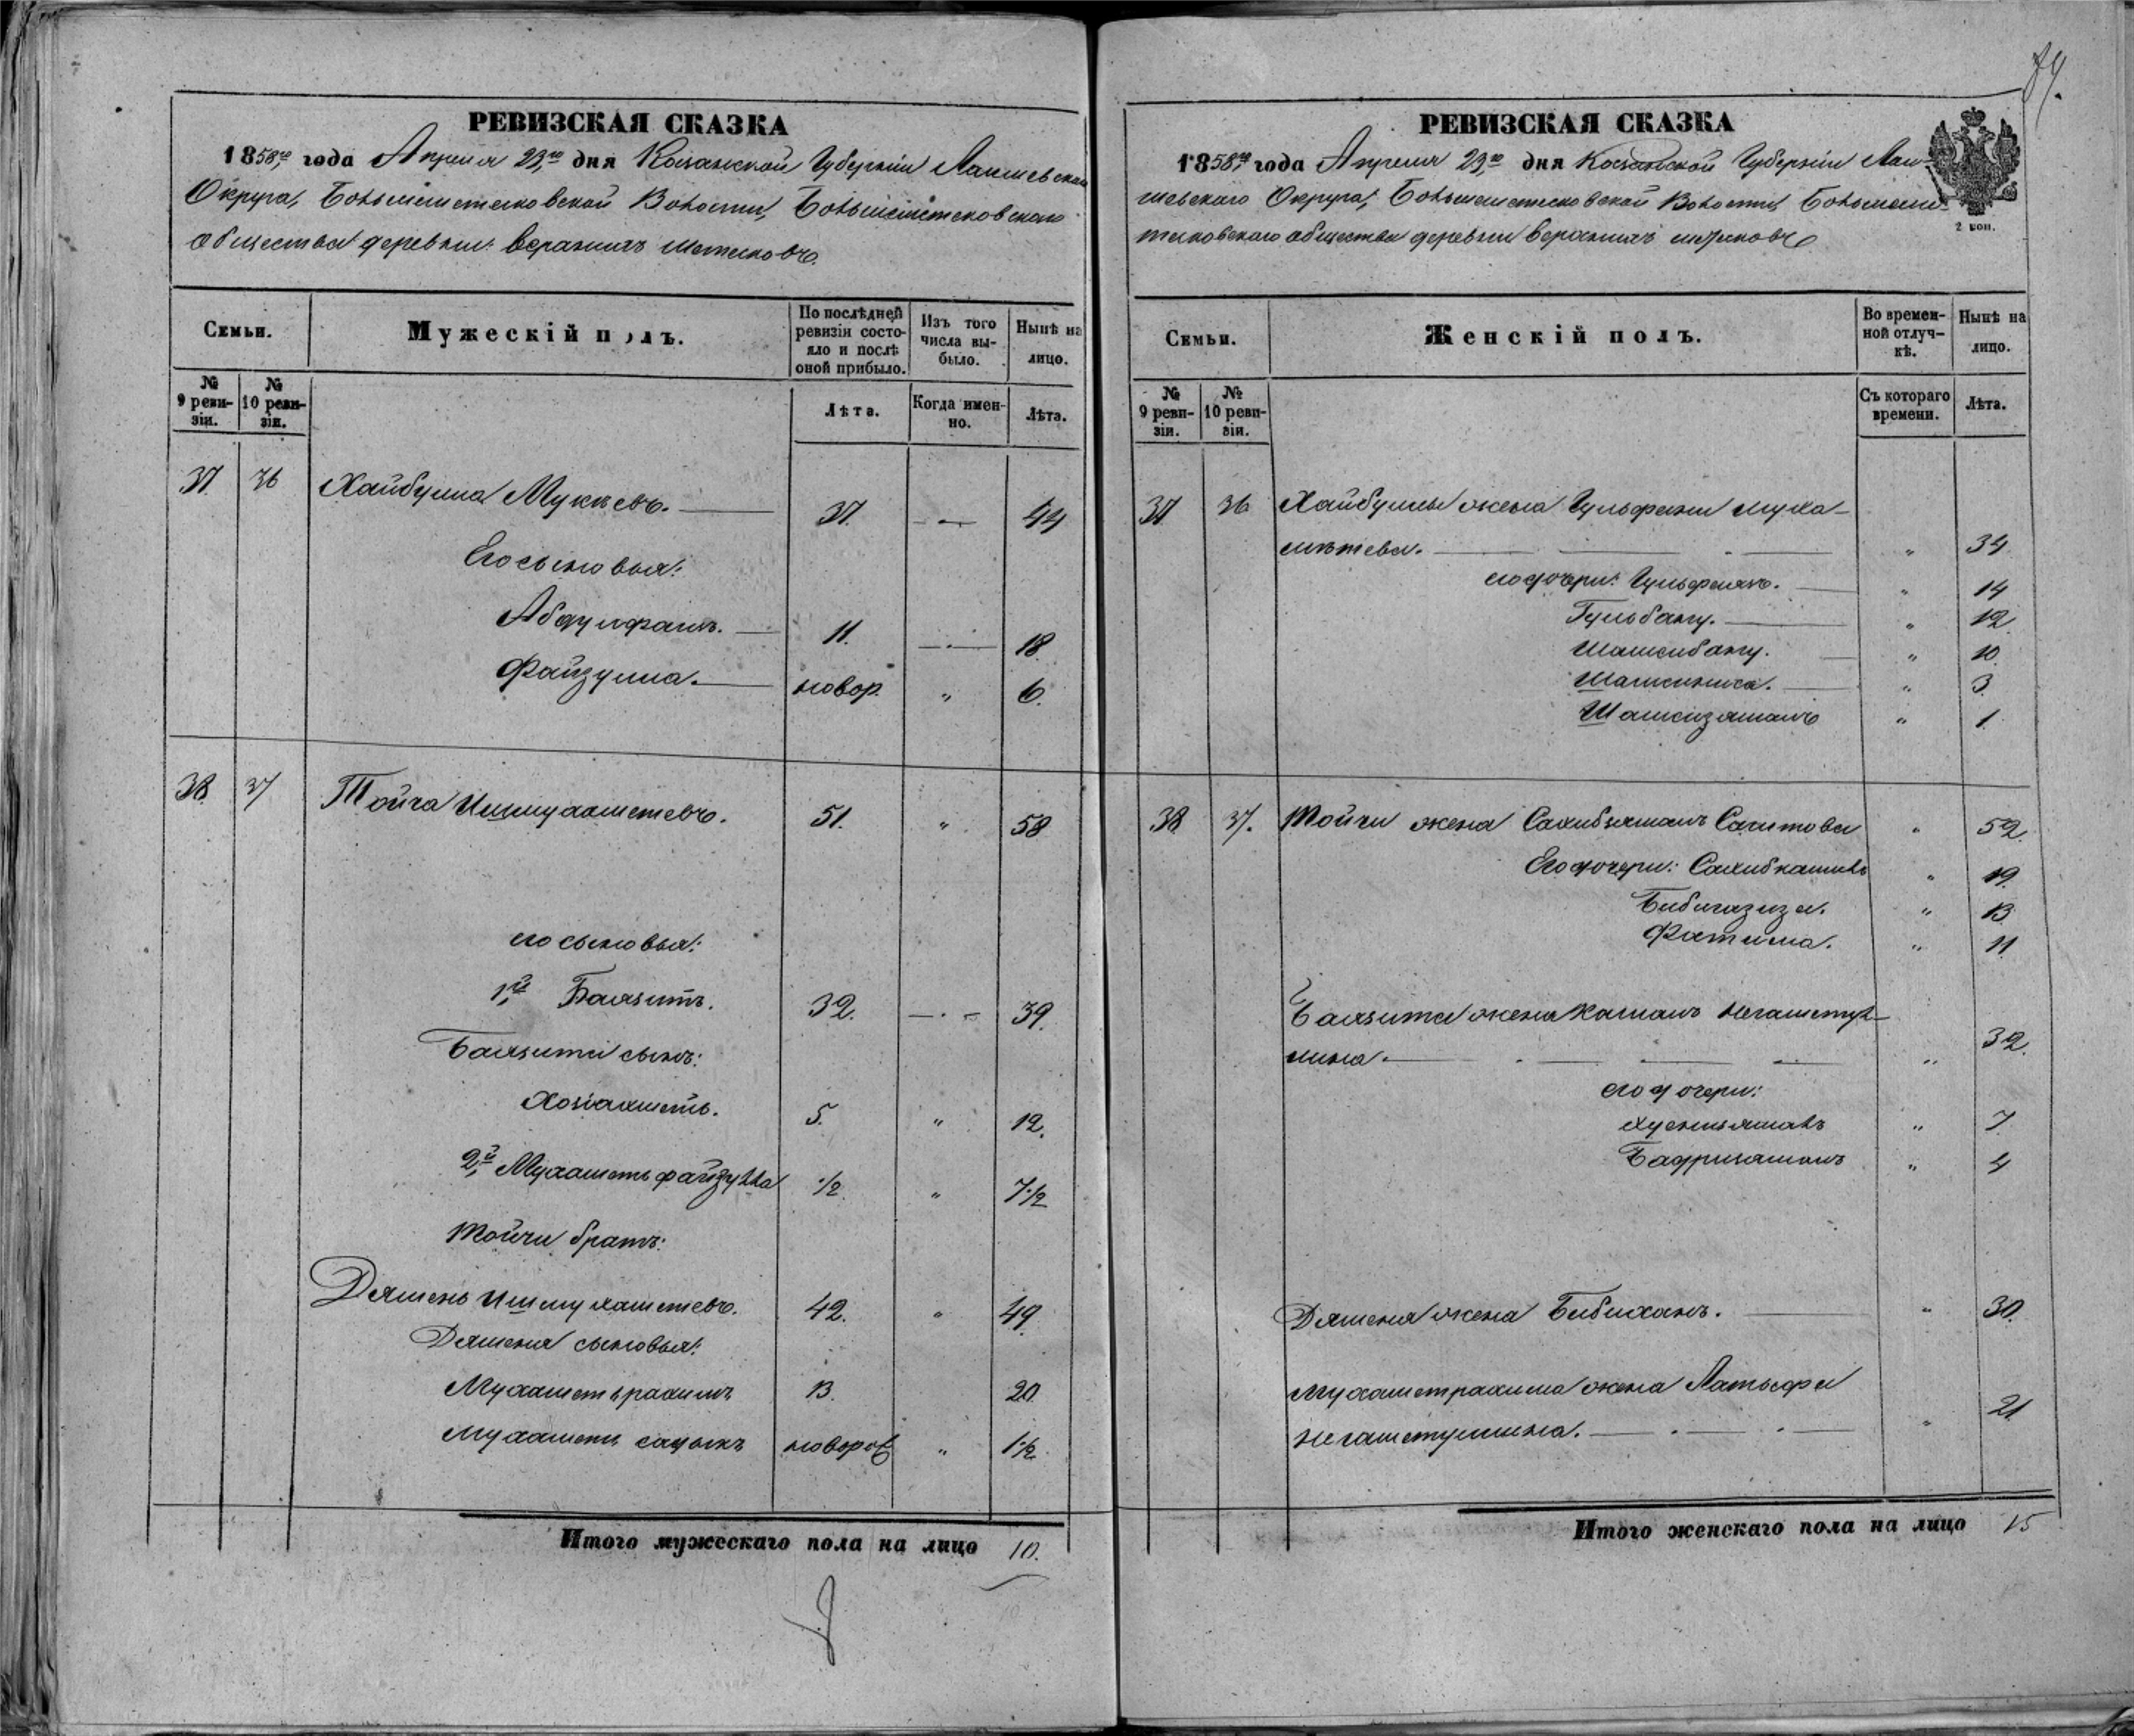 84.
РЕВИЗСКАЯ СКАЗКА
1858го года Апреля 23го дня Казанской Губерніи Лаишевскаго
Округа, Большеметесковской Волости, Большеметесковскаго
общества деревни: Верхнихъ Метесковъ
Семьи.
Мужескій полъ.
По послѣдней ревизіи состояло и послѣ оной прибыло.
Изъ того числа выбыло.
Нынѣ на лицо.
№ 9 ревизіи.
№ 10 ревизіи.
Лѣта.
Когда именно.
Лѣта.
37. 36 Хайбулла Мукѣевъ. 37. 44
Его сыновья:
Абдулфаизъ. 11. 18
Файзулла. новор. " 6.
38. 37 Тойча Ишмухаметевъ. 51. " 58
его сыновья:
1й Баязитъ. 32. 39.
Баязита сынъ:
Хозіахметь. 5. " 12.
2й Мухаметьфайзулла 1/2. " 7 1/2
Тойчи братъ:
Дямень Ишмухаметевъ. 42. " 49.
Дяменя сыновья:
Мухаметьрахимъ 13. 20.
Мухаметь садыкъ новорož " 1 1/2.
Итого мужескаго пола на лицо 10.
РЕВИЗСКАЯ СКАЗКА
1858го года Апреля 23го дня Казанской Губерніи Лаи-
шевскаго Округа, Большеметесковской Волости, Большеме-
тесковскаго общества деревни Верхнихъ Метесковъ
2 коп.
Семьи.
Женскій полъ.
Во временной отлучкѣ.
Нынѣ на лицо.
№ 9 ревизіи.
№ 10 ревизіи.
Съ котораго времени.
Лѣта.
37 36 Хайбуллы жена Гульфани Муха-
мѣтева. " 34
его дочери: Гульфаязъ. " 14
Гульбану. " 12.
Шамсибану. " 10.
Шамсиниса. " 3.
Шамсизямалъ " 1.
38 37. Тойчи жена Сахибзямалъ Сагитова " 52.
Его дочери: Сахибкамалъ " 19.
Бибигазиза. " 13
Фатима. " 11
Баязита жена Камалъ Негаметул-
лина. " 32.
его дочери:
Хуснизямалъ " 7
Бадризямалъ " 4
Дяменя жена Бибиханъ. " 30.
Мухаметрахима жена Латыфа
Негаметуллина. " 21
Итого женскаго пола на лицо 15